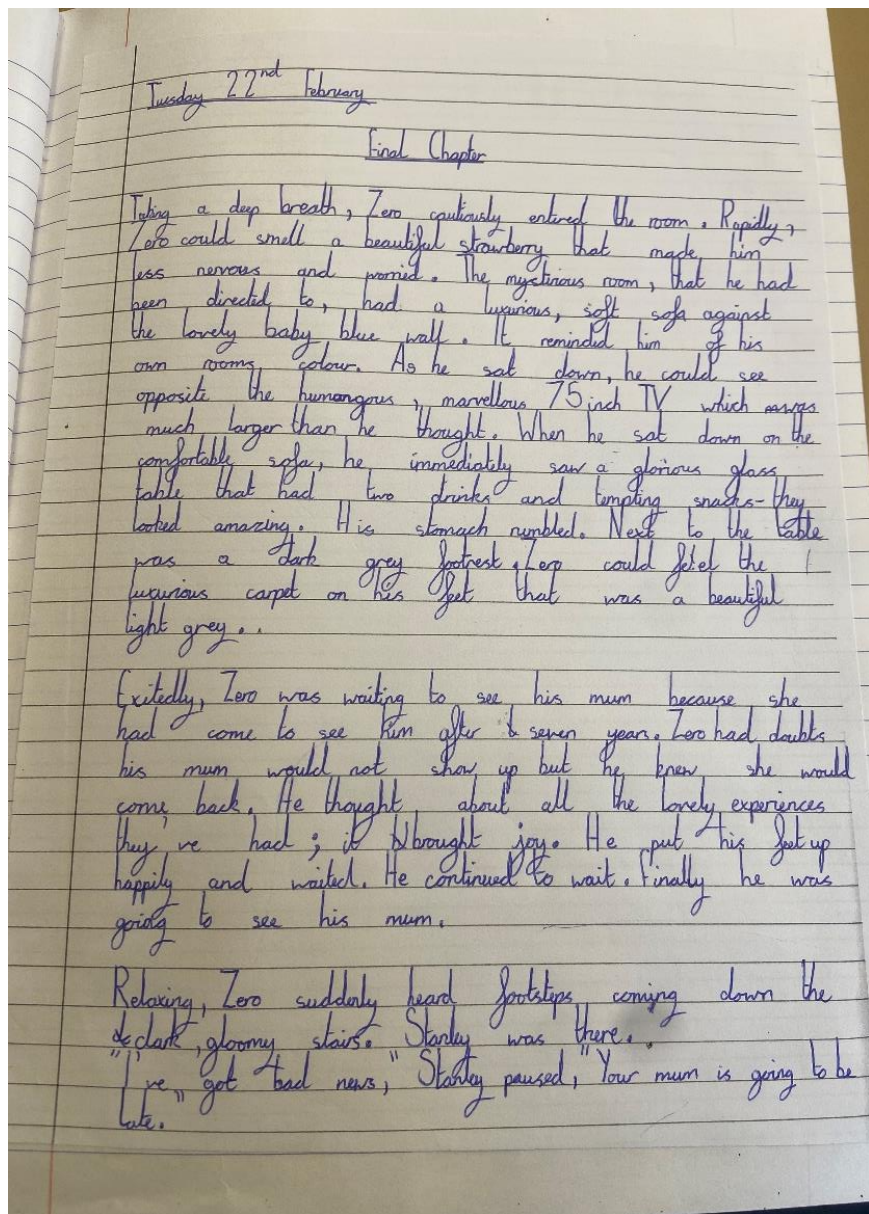 Tuesday 22nd February
Final Chapter
Taking a deep breath, Zero cautiously entered the room. Rapidly,
Zero could smell a beautiful strawberry that made him
less nervous and worried. The mysterious room, that he had
been directed to, had a luxurious, soft sofa against
the lovely baby blue wall. It reminded him of his
own rooms colour. As he sat down, he could see
opposite the humangous, marvellous 75 inch TV which was
much larger than he thought. When he sat down on the
comfortable sofa, he immediately saw a glorious glass
table that had two drinks and tempting snacks-they
looked amazing. His stomach rumbled. Next to the table
was a dark grey footrest. Zero could feel the
luxurious carpet on his feet that was a beautiful
light grey..
Exitedly, Zero was waiting to see his mum because she
had come to see him after seven years. Zero had doubts
his mum would not show up but he knew she would
come back. He thought about all the lovely experiences
they've had; it brought joy. He put his feet up
happily and waited. He continued to wait. Finally he was
going to see his mum.
Relaxing, Zero suddenly heard footsteps coming down the
dark, gloomy stairs. Stanley was there.
"I've got bad news," Stanley paused, "Your mum is going to be
late."